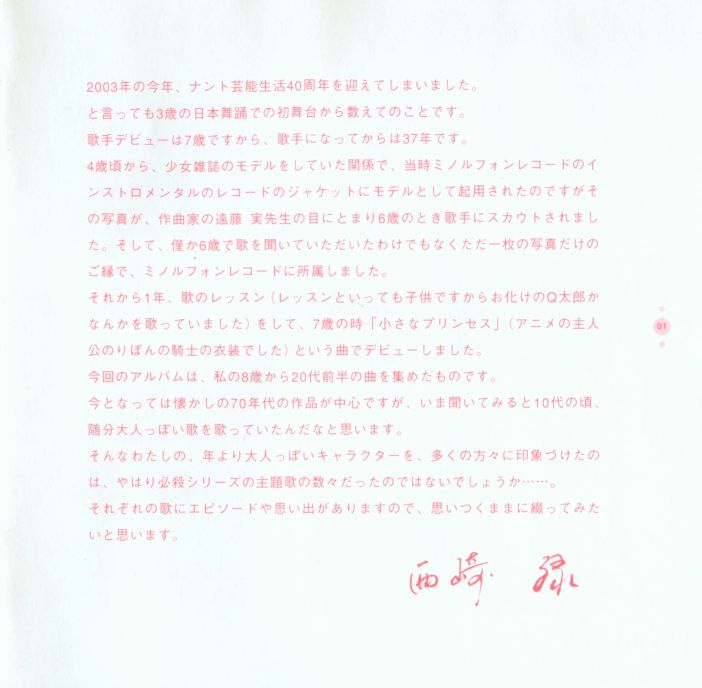 2003年の今年、ナント芸能生活40周年を迎えてしまいました。
と言っても3歳の日本舞踊での初舞台から数えてのことです。
歌手デビューは7歳ですから、歌手になってからは37年です。
4歳頃から、少女雑誌のモデルをしていた関係で、当時ミノルフォンレコードのイ
ンストロメンタルのレコードのジャケットにモデルとして起用されたのですがそ
の写真が、作曲家の遠藤 実先生の目にとまり6歳のとき歌手にスカウトされまし
た。そして、僅か6歳で歌を聞いていただいたわけでもなくただ一枚の写真だけの
ご縁で、ミノルフォンレコードに所属しました。
それから1年、歌のレッスン（レッスンといっても子供ですからお化けのQ太郎か
なんかを歌っていました）をして、7歳の時「小さなプリンセス」（アニメの主人
公のりぼんの騎士の衣装でした）という曲でデビューしました。
今回のアルバムは、私の8歳から20代前半の曲を集めたものです。
今となっては懐かしの70年代の作品が中心ですが、いま聞いてみると10代の頃、
随分大人っぽい歌を歌っていたんだなと思います。
そんなわたしの、年より大人っぽいキャラクターを、多くの方々に印象づけたの
は、やはり必殺シリーズの主題歌の数々だったのではないでしょうか……。
それぞれの歌にエピソードや思い出がありますので、思いつくままに綴ってみた
いと思います。
西崎 緑
01